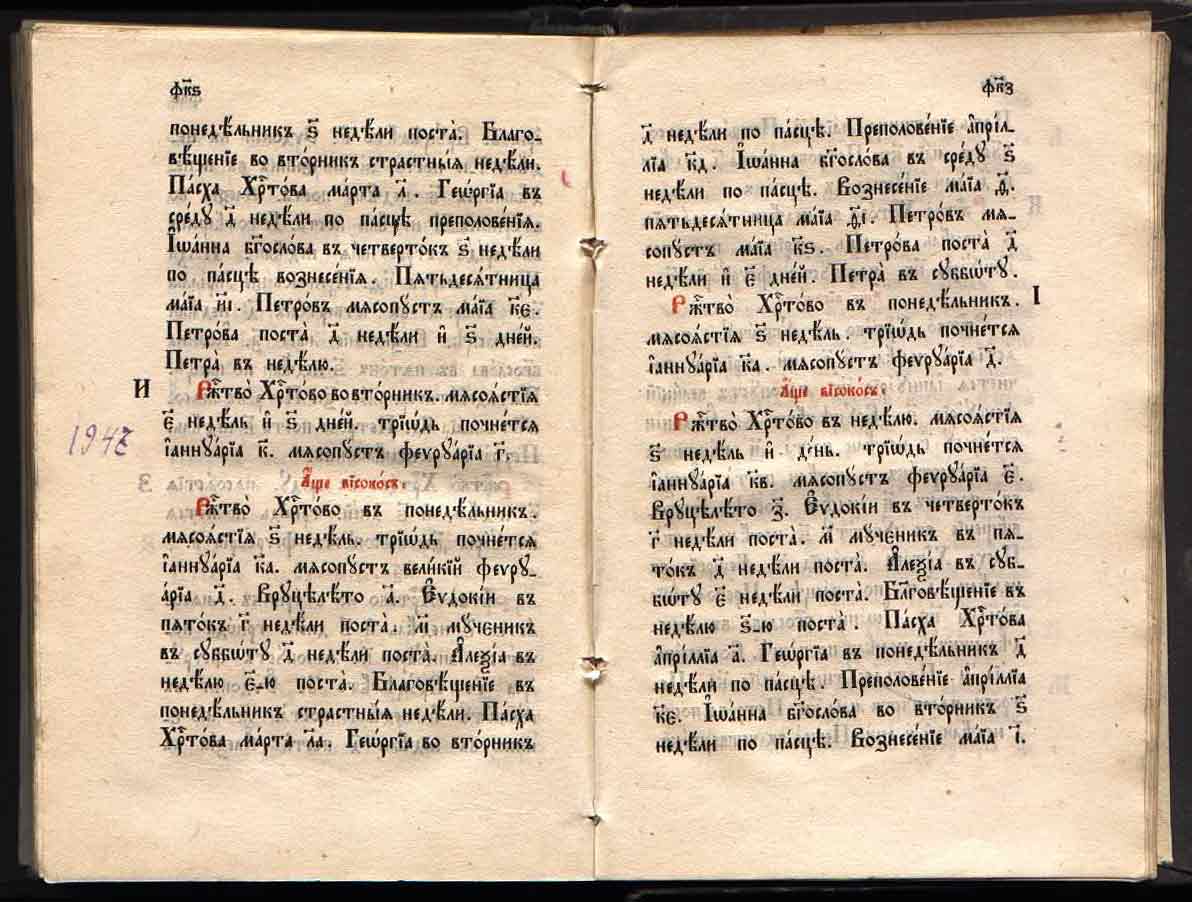 фк҃ѕ
понедѣ́льникъ ѕ҃ недѣ́ли поста̀. Благо-
вѣ́щенїе во вто́рникъ страстны́ѧ недѣ́ли.
Па́сха Хрⷭ҇то́ва ма́рта л҃. Геѡ́ргїа въ
сре́ду д҃ недѣ́ли по па́сцѣ преполове́нїѧ.
І҆ѡа́нна бг҃осло́ва въ четверто́къ ѕ҃ недѣ́ли
по па́сцѣ вознесе́нїѧ. Пѧтьдесѧ́тница
ма́їа и҃і. Петро́въ мѧсопустъ ма́їа к҃є.
Петро́ва поста̀ д҃ недѣ́ли и҆ ѕ҃ дне́й.
Петра̀ въ недѣ́лю.
И
Рж҃тво̀ Хрⷭ҇то́во во вто́рникъ. мѧсоѧ́стїѧ
є҃ недѣ́ль и҆ ѕ҃ дне́й. трїѡ́дь почне́тсѧ
і҆аннꙋа́рїа к҃. мѧсопꙋстъ феѵрꙋа́рїа г҃.
1947
А҆́ще високо́съ.
Рж҃тво̀ Хрⷭ҇то́во въ понедѣ́льникъ.
мѧсоѧ́стїѧ ѕ҃ недѣ́ль. трїѡ́дь почне́тсѧ
і҆аннꙋа́рїа к҃а. мѧсопꙋстъ вели́кїй феѵрꙋ-
а́рїа д҃. Врꙋцѣлѣ́то а҃. Е҆ѵдокі́и въ
пѧто́къ г҃ недѣ́ли поста̀. м҃ мꙋ́ченикъ
въ сꙋббѡ́тꙋ д҃ недѣ́ли поста̀. А҆леѯі́а въ
недѣ́лю є҃-ю поста̀. Благовѣ́щенїе въ
понедѣ́льникъ страстны́ѧ недѣ́ли. Па́сха
Хрⷭ҇то́ва ма́рта л҃а. Геѡ́ргїа во вто́рникъ
фк҃з
д҃ недѣ́ли по па́сцѣ. Преполове́нїе а҆прі́л-
лїа к҃д. І҆ѡа́нна бг҃осло́ва въ сре́дꙋ ѕ҃
недѣ́ли по па́сцѣ. Вознесе́нїе ма́їа ѳ҃.
пѧтьдесѧ́тница ма́їа ѳ҃і. Петро́въ мѧ-
сопꙋстъ ма́їа к҃ѕ. Петро́ва поста̀ д҃
недѣ́ли и҆ є҃ дне́й. Петра̀ въ сꙋббѡ́тꙋ.
І
Рж҃тво̀ Хрⷭ҇то́во въ понедѣ́льникъ.
мѧсоѧ́стїѧ ѕ҃ недѣ́ль. трїѡ́дь почне́тсѧ
і҆аннꙋа́рїа к҃а. мѧсопꙋстъ феѵрꙋа́рїа д҃.
А҆́ще високо́съ.
Рж҃тво̀ Хрⷭ҇то́во въ недѣ́лю. мѧсоѧ́стїѧ
ѕ҃ недѣ́ль и҆ де́нь. трїѡ́дь почне́тсѧ
і҆аннꙋа́рїа к҃в. мѧсопꙋстъ феѵрꙋа́рїа є҃.
Врꙋцѣлѣ́то з҃. Е҆ѵдокі́и въ четверто́къ
г҃ недѣ́ли поста̀. м҃ мꙋ́ченикъ въ пѧ-
то́къ д҃ недѣ́ли поста̀. А҆леѯі́а въ сꙋб-
бѡ́тꙋ є҃ недѣ́ли поста̀. Бл҃говѣ́щенїе въ
недѣ́лю ѕ҃-ю поста̀. Па́сха Хрⷭ҇то́ва
а҆прі́ллїа а҃. Геѡ́ргїа въ понедѣ́льникъ д҃
недѣ́ли по па́сцѣ. Преполове́нїе а҆прі́ллїа
к҃є. І҆ѡа́нна бг҃осло́ва во вто́рникъ ѕ҃
недѣ́ли по па́сцѣ. Вознесе́нїе ма́їа і҃.